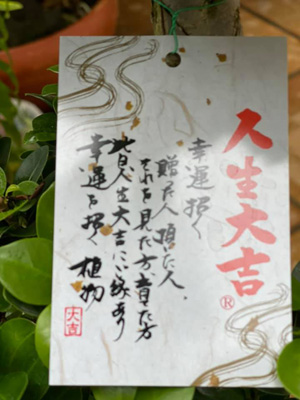 人生大吉
®
幸運招く
贈る人 頂いた人、
それを見た方 育てた方
皆人生大吉にご縁あり
幸運を招く 植物
大吉